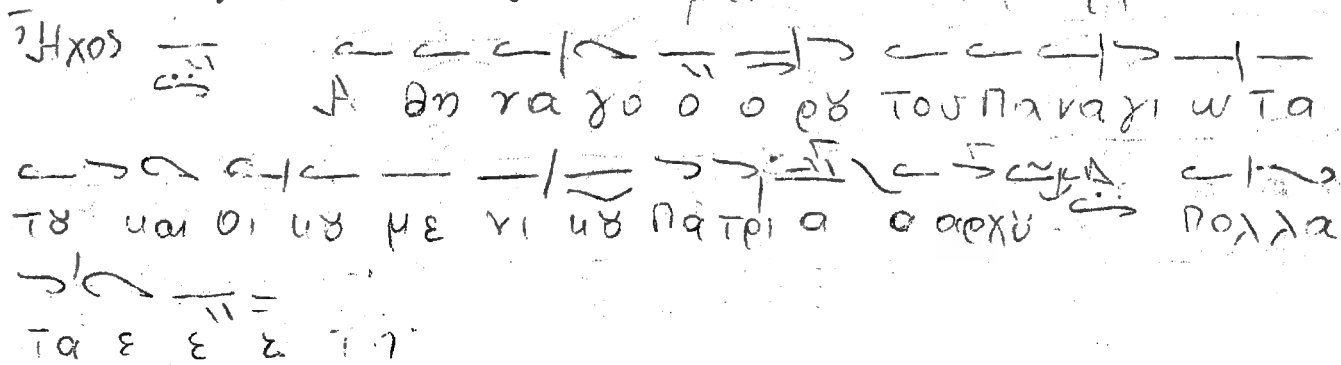 Ἦχος Α θη να γο ο ο ρȣ του Πα να γι ω τα
τȣ και οι κȣ με νι κȣ Πα τρι α α αρχȣ Πολλα
τα ε ε ε τη